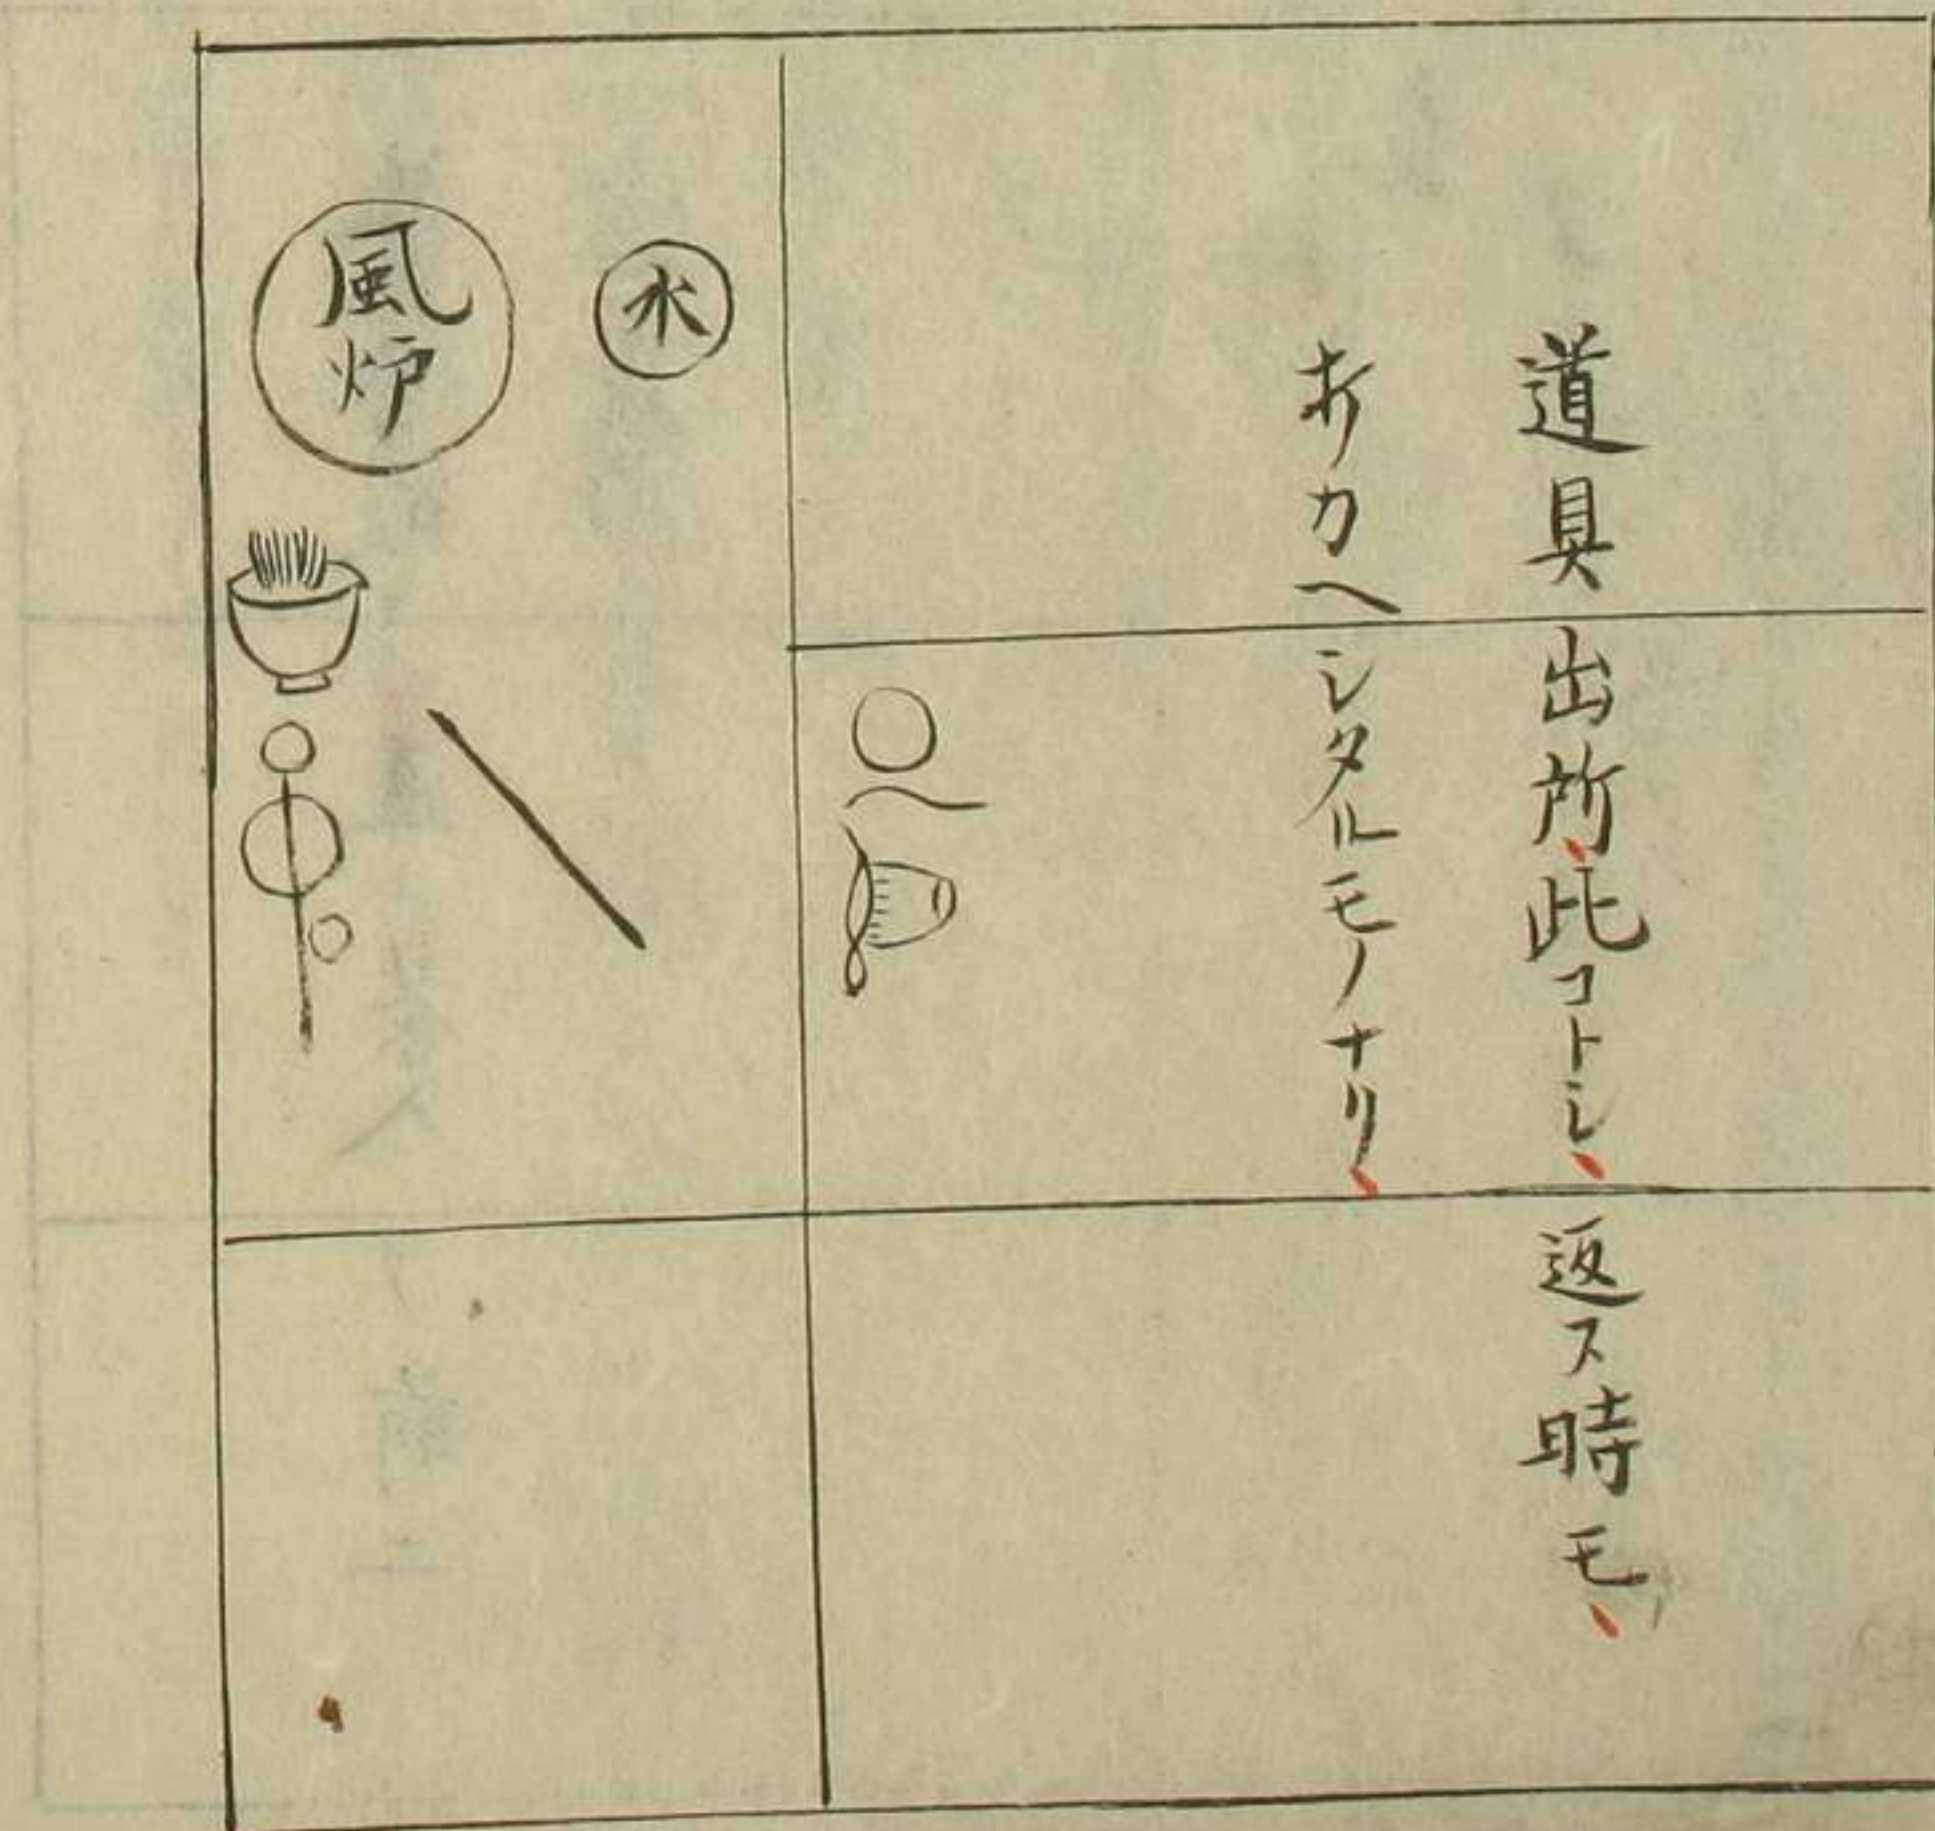 道具出所此コトシ返ス時モ
折カヘシタルモノナリ
水
風炉